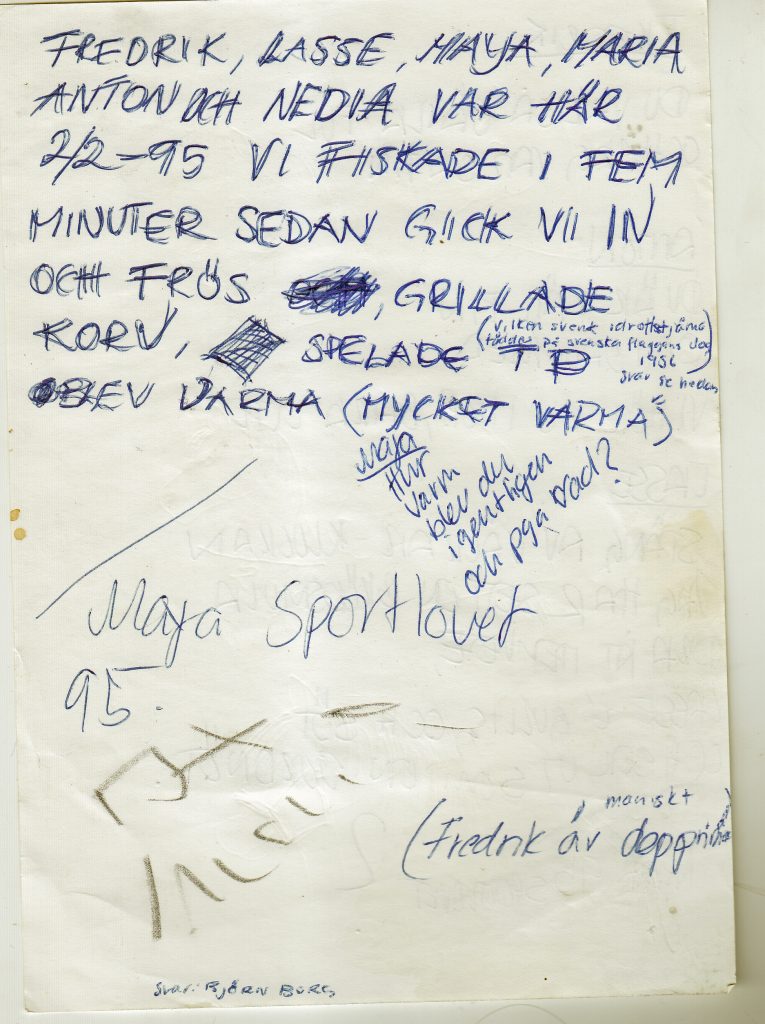 FREDRIK, LASSE, MAYA, MARIA
ANTON OCH NEDIA VAR HÄR
2/2-95 VI FISKADE I FEM
MINUTER SEDAN GICK VI IN
OCH FRÖS, GRILLADE
KORV, SPELADE TP
(Vilken svensk idrottstjärna
föddes på svenska flaggans dag
1956
svar se nedan)
BLEV VARMA (MYCKET VARMA)
Maja
Hur
varm
blev du
igentligen
och pga vad?
Maja Sportlovet
95.
maniskt
(Fredrik är
Svar: BJÖRN BORG